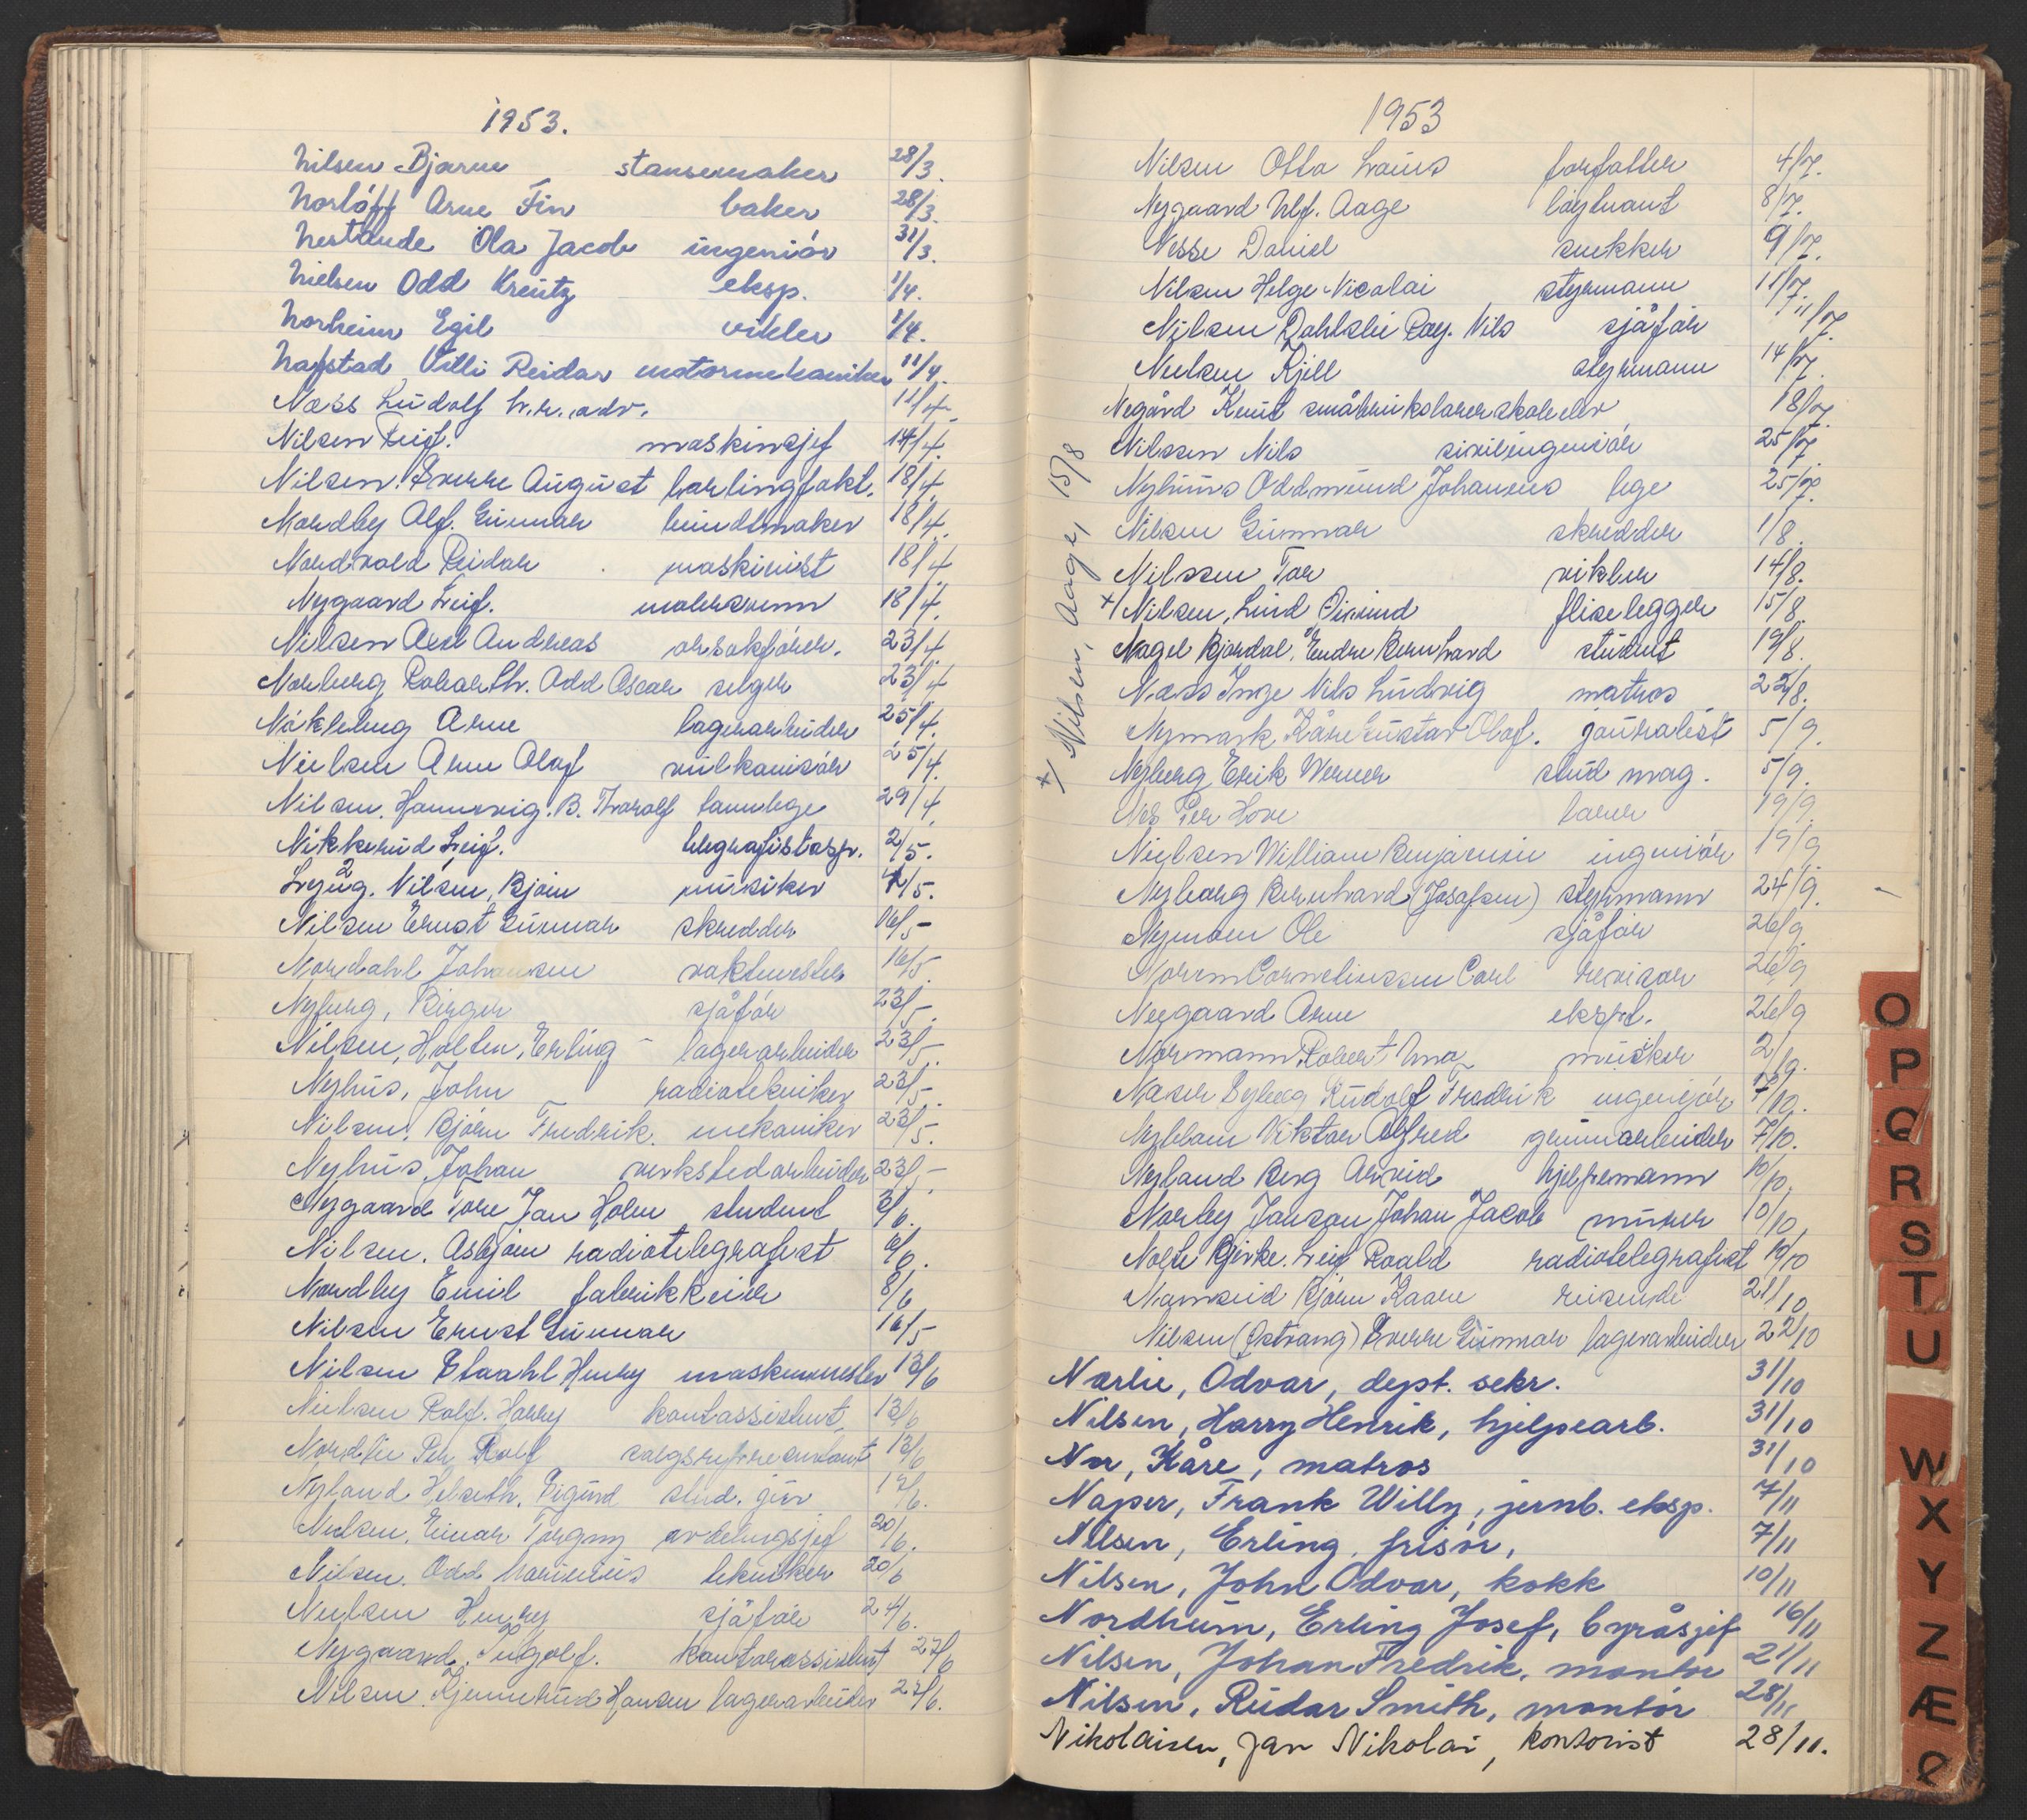 1953.
Nilsen Bjarne stansemaker 28/3.
Norløff Arne Fin baker 28/3.
Nestande Ola Jacob ingeniør 31/3.
Nielsen Odd Kreutz eksp. 1/4.
Norheim Egil vikler 1/4.
Nafstad Villi Reidar motormekaniker 11/4.
Næss Ludolf h.r.adv. 11/4.
Nilsen Leif. maskinsjef 14/4.
Nilsen. Sverre August 18/4.
Nordby Alf. Gunnar bundtmaker 18/4.
Nordvold Reidar maskinist 18/4.
Nygaard Leif. malersvenn 18/4.
Nilsen Axel Andreas orsakfører. 23/4
Norberg Robar Chr. Odd Oscar selger 23/4
Nøkleberg Arne lagerarbeider 25/4.
Nielsen Arne Olaf vulkanisør 25/4.
Nilsen. Hannevig. B. Thoralf tannlege 29/4
Nikkerud Leif. telegrafistasp. 2/5.
Lyng. Nilsen, Bjørn musiker 2/5.
Nilsen Ernst Gunnar skredder 16/5
Nordahl Johansen vaktmester 16/5.
Nyberg, Birger sjåfør 23/5.
Nilsen, Holten, Erling lagerarbeider 23/5.
Nyhus, John radiotekniker 23/5.
Nilsen, Bjørn Fredrik. mekaniker 23/5.
Nyhus, Johan verkstedarbeider 23/5
Nygaard Tore Jan Holm student 3/6.
Nilsen. Asbjørn radiotelegrafist 6/6.
Nordby Emil fabrikkeier 8/6
Nilsen Ernst Gunnar 16/5
Nilsen Staahl Henry maskinmester 13/6
Nielsen Rolf. Harry kontassistent 13/6
Nordlie Per Rolf salgsrepresentant 13/6
Nyland Helseth, Sigurd stud. jur 17/6.
Nielsen. Einar Torgny avdelingsjef 20/6.
Nilsen. Odd Marinius tekniker 20/6
Nielsen Henry sjåfør 24/6.
Nygaard. Ingolf. kontorassistent 27/6
Nilsen. Kjennerud Hansen lagerarbeider 27/6.
1953
Nilsen Otto Louis forfatter 4/7.
Nygaard Ulf. Aage løytnant 8/7.
Nesse Daniel snekker 9/7.
Nilsen Helge Nicolai styrmann 11/7.
Nilsen Dahlslie Ray. Nils sjåfør 11/7.
Nielsen Kjell styrmann 14/7.
Negård Knut småbrukslærerskoleelev 18/7.
Nilssen Nils sivilingeniør 25/7.
Nyhuus Oddmund Johannes lege 25/7.
Nilsen Gunnar skredder 1/8.
Nilssen Tor vikler 14/8.
+/ Nilsen, Lind, Eivind fliselegger 15/8.
+/ Nilsen, Aage, 15/8
Nagel Bjordal, Endre Bernhard student 19/8.
Næss Inge Nils Ludvig matros 22/8.
Nymark Kåre Gustav Olaf. journalist 5/9.
Nyberg Erik Werner stud mag. 5/9.
Nes Per Hove lærer 19/9.
Nielsen William Benjamin ingeniør 19/9
Nyborg Bernhard (Josefsen) styrmann 24/9.
Nymoen Ole sjåfør 26/9.
Corneliussen Carl revisor 26/9
Neegaard Arne ekspd. 26/9
Normann Robert Uno musiker 2/10.
Naser Nyberg Rudolf Fredrik ingeniør 7/10.
Viktor Alfred gruvearbeider 7/10.
Nyland Berg Arvid hjelpemann 10/10.
Norby Janson Johan Jacob murer 10/10.
Nolte Bjerke. Leif Roald radiotelegrafist 10/10
Bjørn Kaare reisende 21/10
Nilsen (Østvang) Sverre Gunnar lagerarbeider 22/10
Nærlie, Odvar, dept. sekr. 31/10
Nilsen, Harry Henrik, hjelpearb. 31/10
Nor, Kåre, matros 31/10
Napser, Frank Willy, jernb. eksp. 7/11
Nilsen, Erling, frisør, 7/11
Nilsen, John Odvar, kokk 10/11
Nordheim, Erling Josef, byråsjef 16/11
Nilsen, Johan Fredrik, montør 21/11
Nilsen, Reidar Smith, montør 28/11
Nikolaisen, Jan Nikolai, kontorist 28/11.
O
P
Q
R
S
T
U
W
X
Y
Z
Æ
Ø